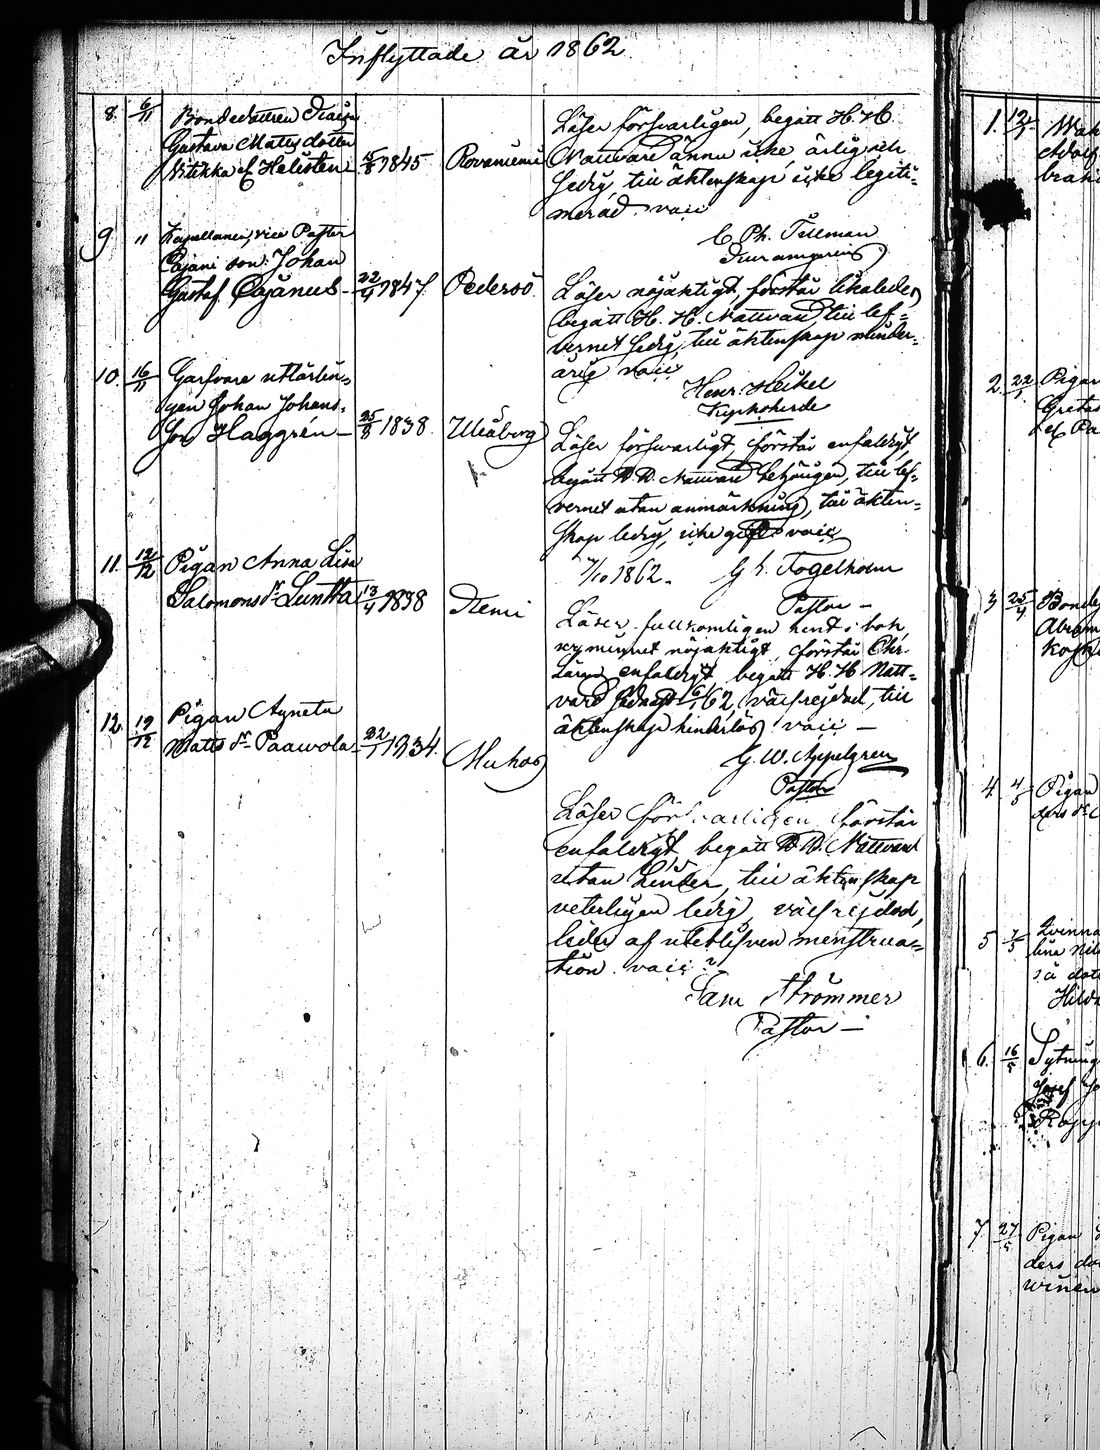 Inflyttade år 1862.
8. 6/11 Bondedottren Kaisa
Gustava Mattsdotter
Vitikka el. Helisten 15/8 1845 Rovaniemi
Läser försvarligen, begått H. H.
Nattvard ännu icke, ärlig och
ledig, till äktenskap icke legiti-
merad. vaii
C. Ph. Tillman
9 " Kapellanen, vice Pastor
Cajani son: Johan
Gustaf Cajanus 22/4 1847. Pedersö.
Läser nöjaktigt, förstår likaledes
begått H. H. Nattvard, till lef-
vernet ledig, till äktenskap minder-
årig vaii
Henr. Heikel
Kyrkoherde
10. 16/11 Garfvare utlärlin-
gen Johan Johans-
son Haggrén 25/8 1838. Uleåborg
Läser försvarligt, förstår enfaldigt,
begått H. H. Nattvard behörigen, till lef-
vernet utan anmärkning, till äkten-
skap ledig, icke gift vaii
7/10 1862. G. L. Fogelholm
Pastor
11. 12/12 Pigan Anna Lisa
Salomons dr Luntta 13/4 1838 Kemi
Läser fullkomligen rent i bok,
ur minnet nöjaktigt, förstår Chr.
Läran enfaldigt, begått H. H. Natt-
vard sednast 6/1 62, välfrejdad, till
äktenskap hinderlös vaii
G. W. Appelgren
Pastor
12. 19/12 Pigan Agneta
Matts dr Paavola 22/1 1834. Muhos
Läser försvarligen, förstår
enfaldigt, begått H. H. Nattvard
utan hinder, till äktenskap
veterligen ledig, välfrejdad,
lider af uteblifven menstrua-
tion. vaii
Sam Strömmer
Pastor
1.
2. 22/1 Pigan
Greta
el. Pa
3 25/4 Bonde
Abram
4. 4/5 Pigan
ders dr
5 7/5 Qvinna
lina Nil
Hilda
6. 16/5 Sytning
Josef
7. 27/5 Pigan
ders do
winen